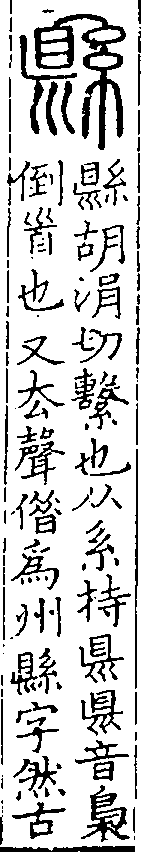 縣
縣胡涓切繫也从系持𥄉𥄉音梟
倒𩠐也又去聲偕為州縣字然古